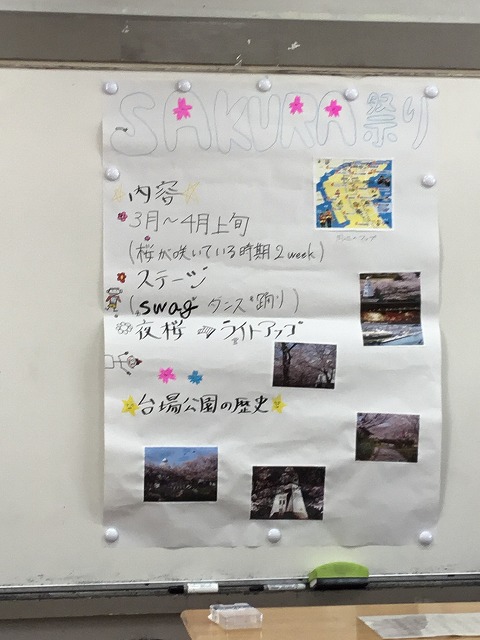 SAKURA祭り
内容
3月〜4月上旬
(桜が咲いている時期2week)
ステージ
(swag ダンス 踊り)
夜桜 ⇨ ライトアップ
台場公園の歴史